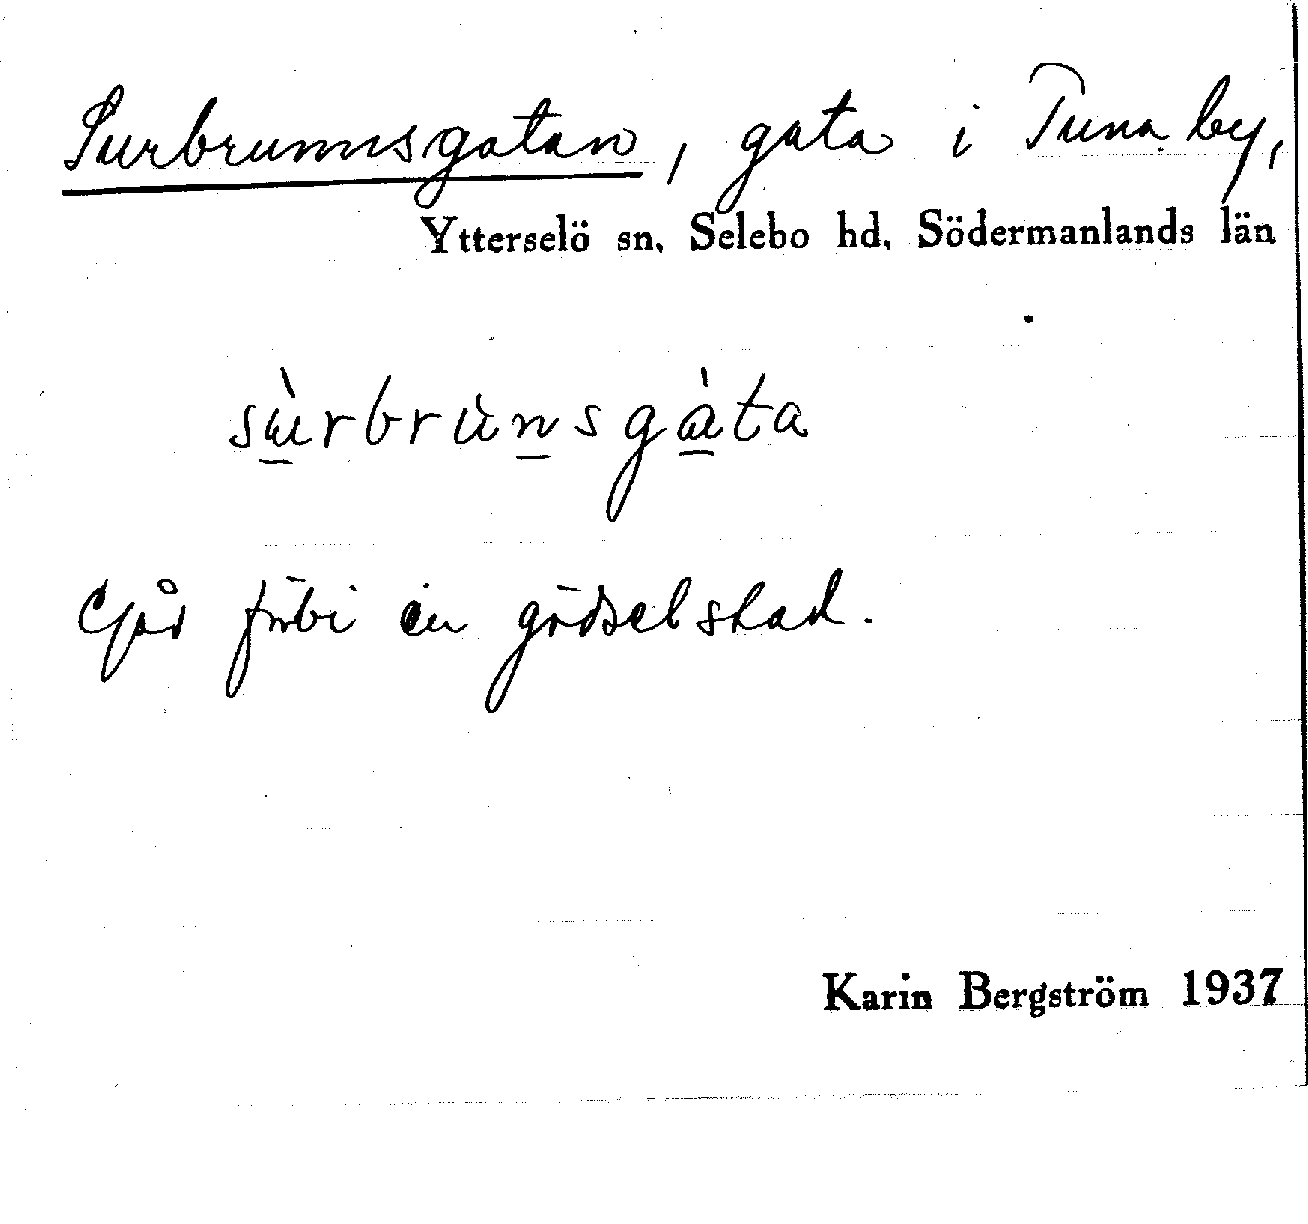 Surbrunnsgatan, gata i Tuna by,
Ytterselö sn, Selebo hd, Södermanlands län
sùrbrùnsgàta
Går förbi en gödselstad.
Karin Bergström 1937